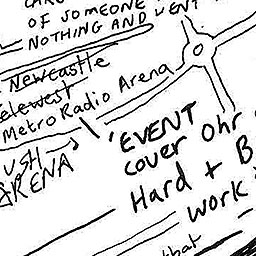 OF SOMEONE
NOTHING AND WENT
Newcastle
Telewest
Metro Radio Arena
USH
ARENA
'EVENT
cover Ohr
Hard + B
work
that